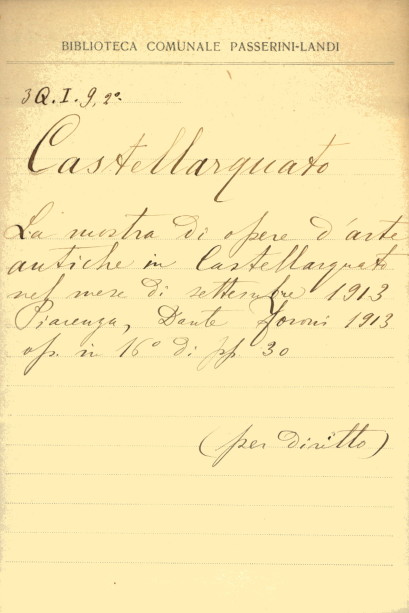 BIBLIOTECA COMUNALE PASSERINI-LANDI
3Q.I.9,2º.
Castellarquato
La mostra di opere d'arte
antiche in Castellarquato
nel mese di settembre 1913
Piacenza, Dante Foroni 1913
op. in 16º di pp 30
(per diritto)